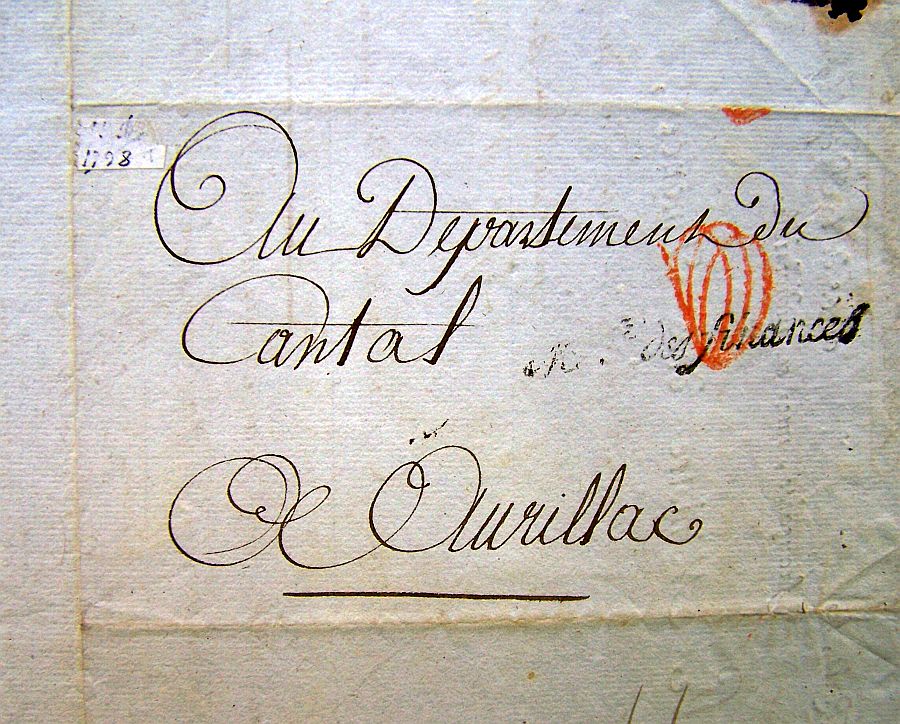 1798
Au Département du
Cantal
des finances
A Aurillac